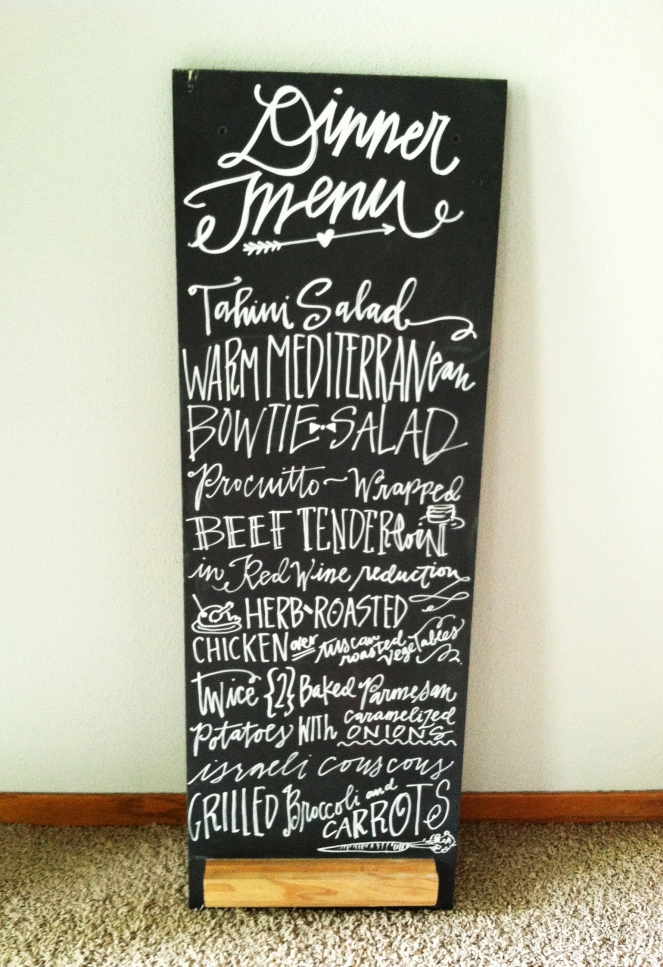 Dinner
menu
Tahini Salad
WARM MEDITERRANean
BOWTIE SALAD
Procuitto~Wrapped
BEEF TENDERloiN
in Red Wine reduction
HERB-ROASTED
CHICKEN over tuscan roasted vegeTables
twice {2} Baked Parmesan
Potatoes WITH caramelized ONIONS
israeli couscous
GRILLED Broccoli and CARROTS